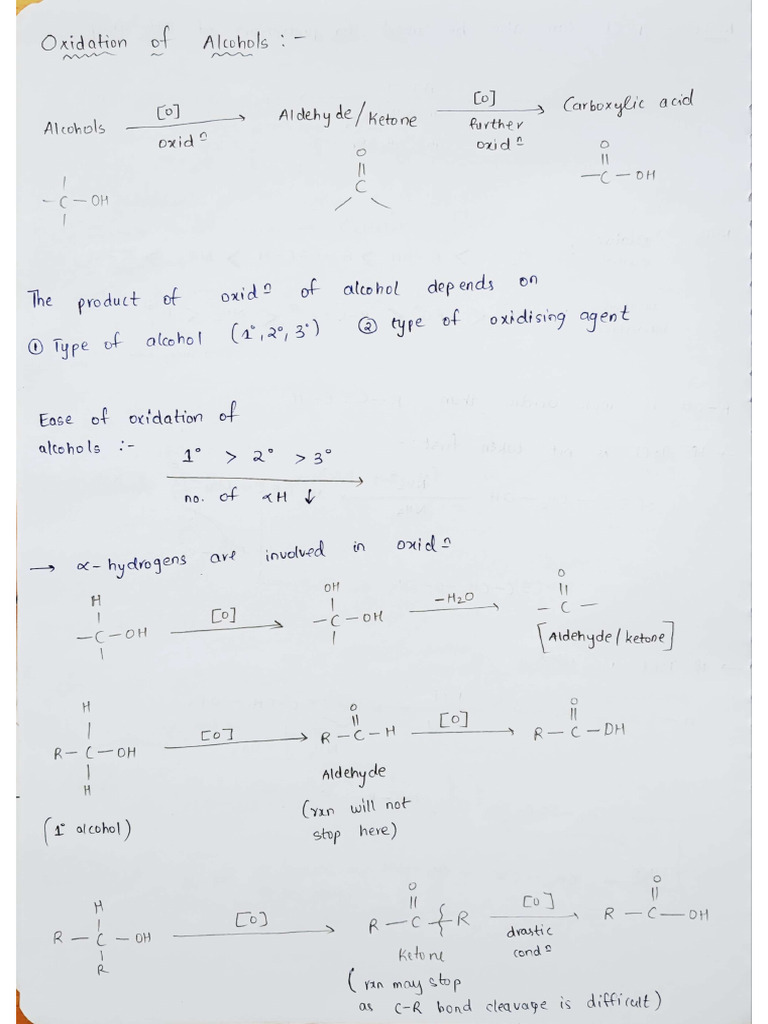 Oxidation of Alcohols :-
Alcohols [O] oxidⁿ Aldehyde/Ketone [O] further oxidⁿ Carboxylic acid
-C-OH
O
||
C
O
||
-C-OH
The product of oxidⁿ of alcohol depends on
① Type of alcohol (1°, 2°, 3°) ② type of oxidising agent
Ease of oxidation of
alcohols :- 1° > 2° > 3°
no. of αH ↓
→ α-hydrogens are involved in oxidⁿ
H
|
-C-OH
|
[O]
OH
|
-C-OH
|
-H2O
O
||
-C-
[Aldehyde/ketone]
H
|
R-C-OH
|
H
(1° alcohol)
[O]
O
||
R-C-H
Aldehyde
(rxn will not
stop here)
[O]
O
||
R-C-OH
H
|
R-C-OH
|
R
[O]
O
||
R-C-R
Ketone
(rxn may stop
as C-R bond cleavage is difficult)
[O]
drastic
condⁿ
O
||
R-C-OH